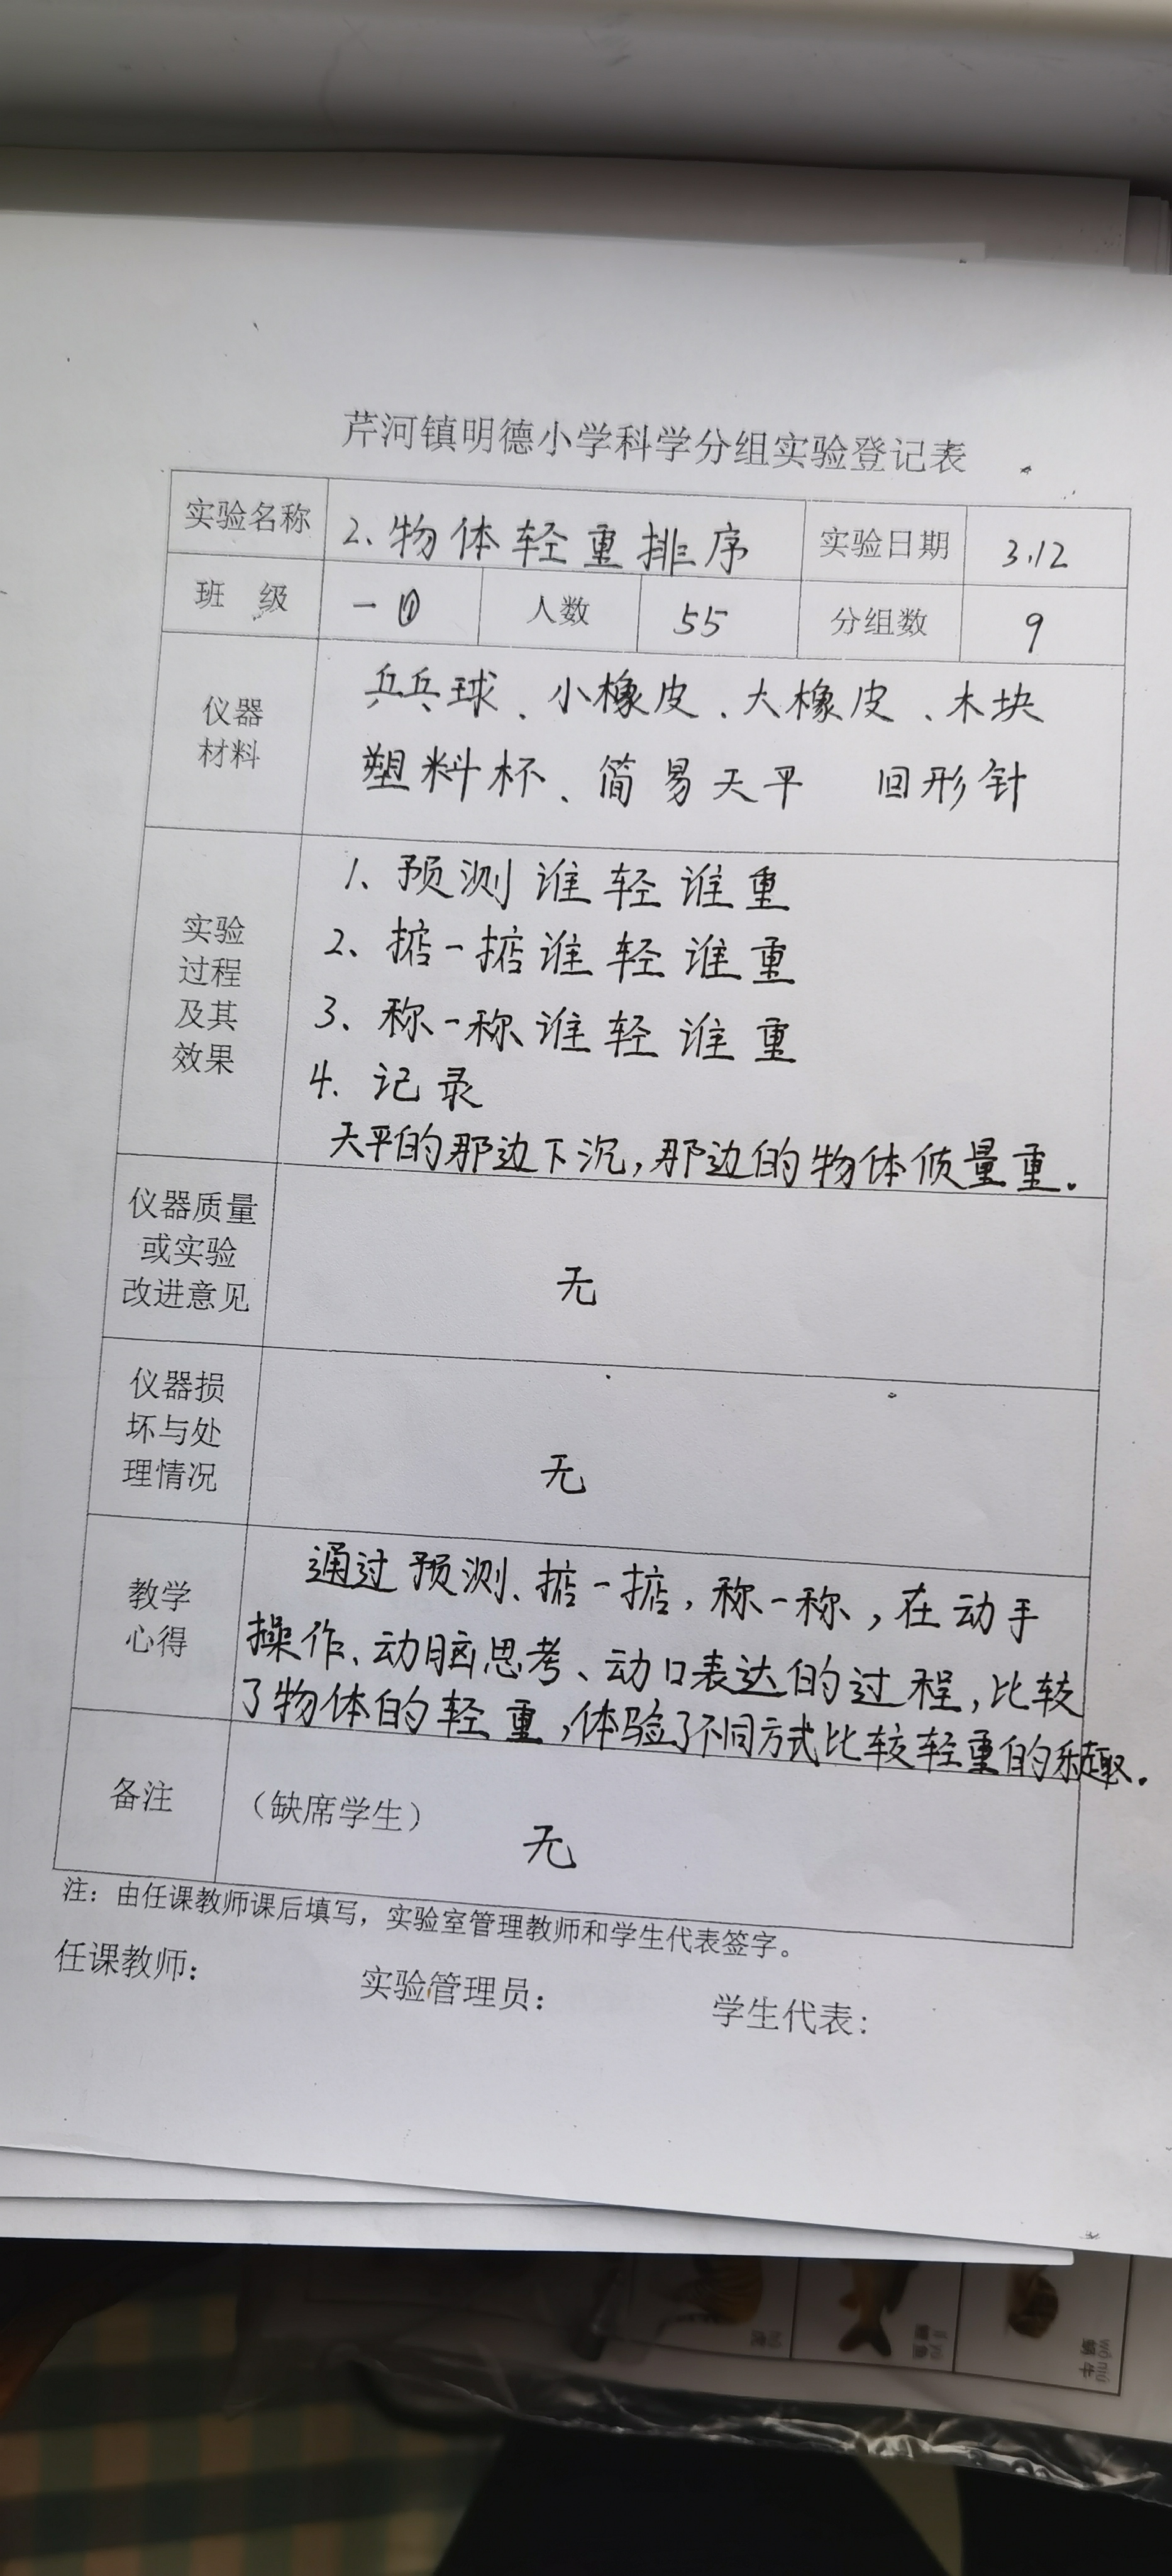 芹河镇明德小学科学分组实验登记表
实验名称 2.物体轻重排序 实验日期 3.12
班 级 一① 人数 55 分组数 9
仪器
材料
乒乓球、小橡皮、大橡皮、木块
塑料杯、简易天平 回形针
实验
过程
及其
效果
1、预测谁轻谁重
2、掂一掂谁轻谁重
3、称一称谁轻谁重
4、记录
天平的那边下沉,那边的物体质量重.
仪器质量
或实验
改进意见
无
仪器损
坏与处
理情况
无
教学
心得
通过预测、掂一掂,称一称,在动手
操作、动脑思考、动口表达的过程,比较
了物体的轻重,体验了不同方式比较轻重的乐趣.
备注 (缺席学生) 无
注:由任课教师课后填写,实验室管理教师和学生代表签字。
任课教师: 实验管理员: 学生代表:
虎
鲤鱼
wō niú
蜗牛